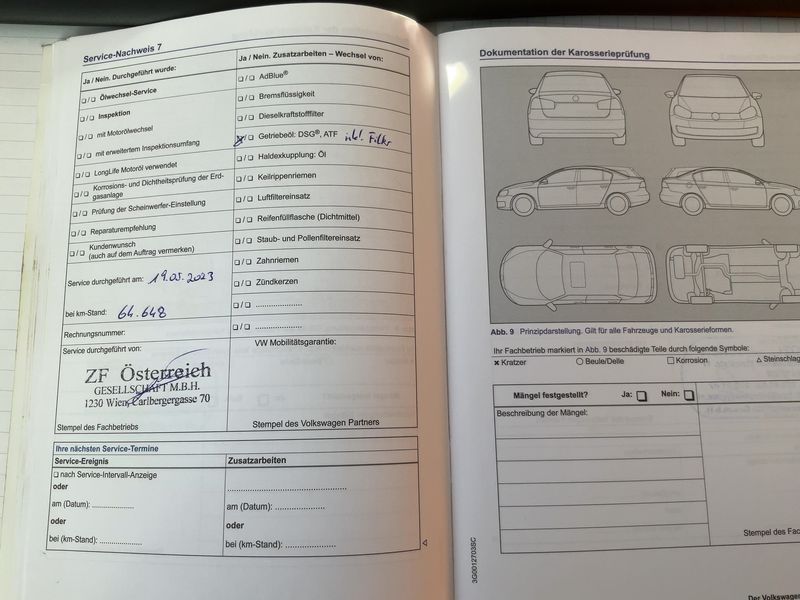 Service-Nachweis 7
Ja / Nein. Durchgeführt wurde:
❑ / ❑ Ölwechsel-Service
❑ / ❑ Inspektion
❑ / ❑ mit Motorölwechsel
❑ / ❑ mit erweitertem Inspektionsumfang
❑ / ❑ LongLife Motoröl verwendet
❑ / ❑ Korrosions- und Dichtheitsprüfung der Erd-
gasanlage
❑ / ❑ Prüfung der Scheinwerfer-Einstellung
❑ / ❑ Reparaturempfehlung
❑ / ❑ Kundenwunsch
(auch auf dem Auftrag vermerken)
Service durchgeführt am: 19.05.2023
bei km-Stand: 64.648
Rechnungsnummer:
Service durchgeführt von:
ZF Österreich
GESELLSCHAFT M.B.H.
1230 Wien, Carlbergergasse 70
Stempel des Fachbetriebs
Ja / Nein. Zusatzarbeiten – Wechsel von:
❑ / ❑ AdBlue®
❑ / ❑ Bremsflüssigkeit
❑ / ❑ Dieselkraftstofffilter
☒ / ❑ Getriebeöl: DSG®, ATF inkl. Filter
❑ / ❑ Haldexkupplung: Öl
❑ / ❑ Keilrippenriemen
❑ / ❑ Luftfiltereinsatz
❑ / ❑ Reifenfüllflasche (Dichtmittel)
❑ / ❑ Staub- und Pollenfiltereinsatz
❑ / ❑ Zahnriemen
❑ / ❑ Zündkerzen
❑ / ❑ ......................
❑ / ❑ ......................
VW Mobilitätsgarantie:
Stempel des Volkswagen Partners
Ihre nächsten Service-Termine
Service-Ereignis
❑ nach Service-Intervall-Anzeige
oder
am (Datum): ....................
oder
bei (km-Stand): ....................
Zusatzarbeiten
..........................................
am (Datum): ....................
oder
bei (km-Stand): ....................
Dokumentation der Karosserieprüfung
Abb. 9 Prinzipdarstellung. Gilt für alle Fahrzeuge und Karosserieformen.
Ihr Fachbetrieb markiert in Abb. 9 beschädigte Teile durch folgende Symbole:
✖ Kratzer ○ Beule/Delle □ Korrosion △ Steinschlag
Mängel festgestellt? Ja: ❑ Nein: ❑
Beschreibung der Mängel:
Stempel des Fac
3G0012703SC
Der Volkswagen